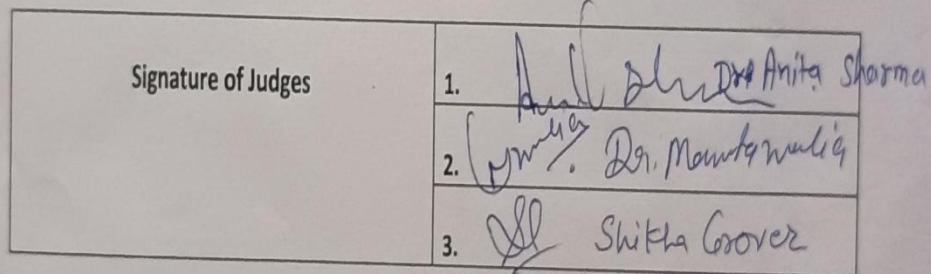 Signature of Judges
1. Dr. Anita Sharma
2. Dr. Mamta Walia
3. Shikha Grover